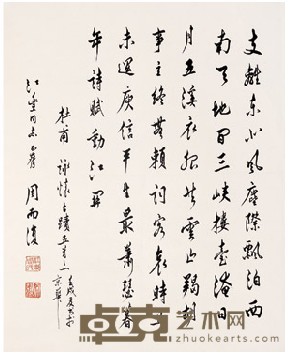 支離東北風塵際飄泊西
南天地間三峽樓臺淹日
月五溪衣服共雲山羯胡
事主終無賴詞客哀時
未還庾信平生最蕭瑟暮
年詩賦動江關
杜甫詠懷古蹟五首之一
壬戌夏書於
京華
同志正
周而復
卓克艺术网